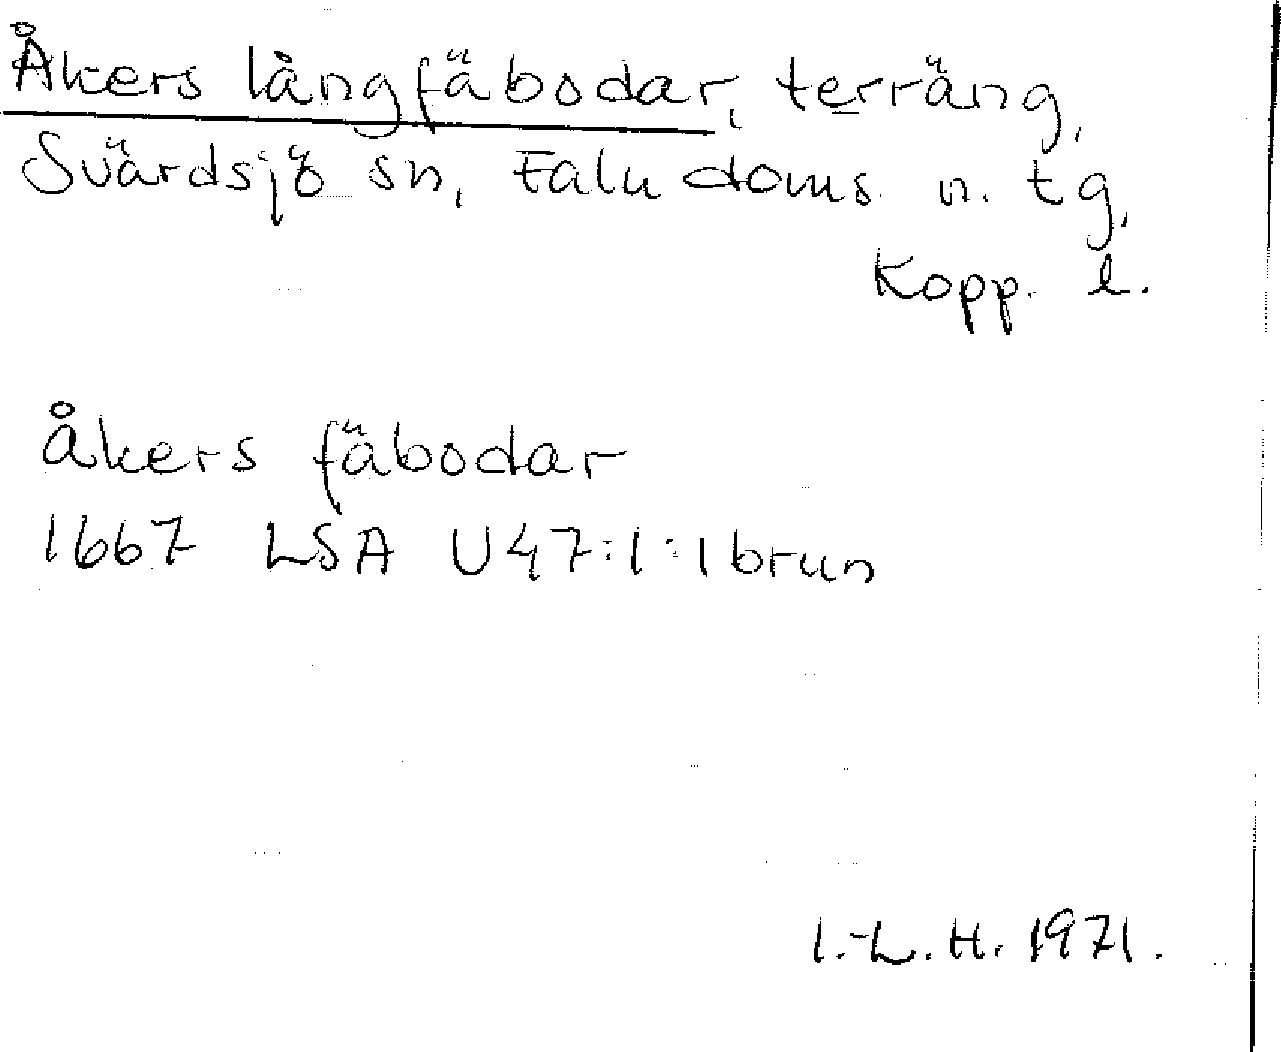 Åkers långfäbodar, terräng,
Svärdsjö sn, Falu doms. n. tg,
Kopp. l.
åkers fäbodar
1667 LSA U47:1:1 brun
I.-L. H. 1971.